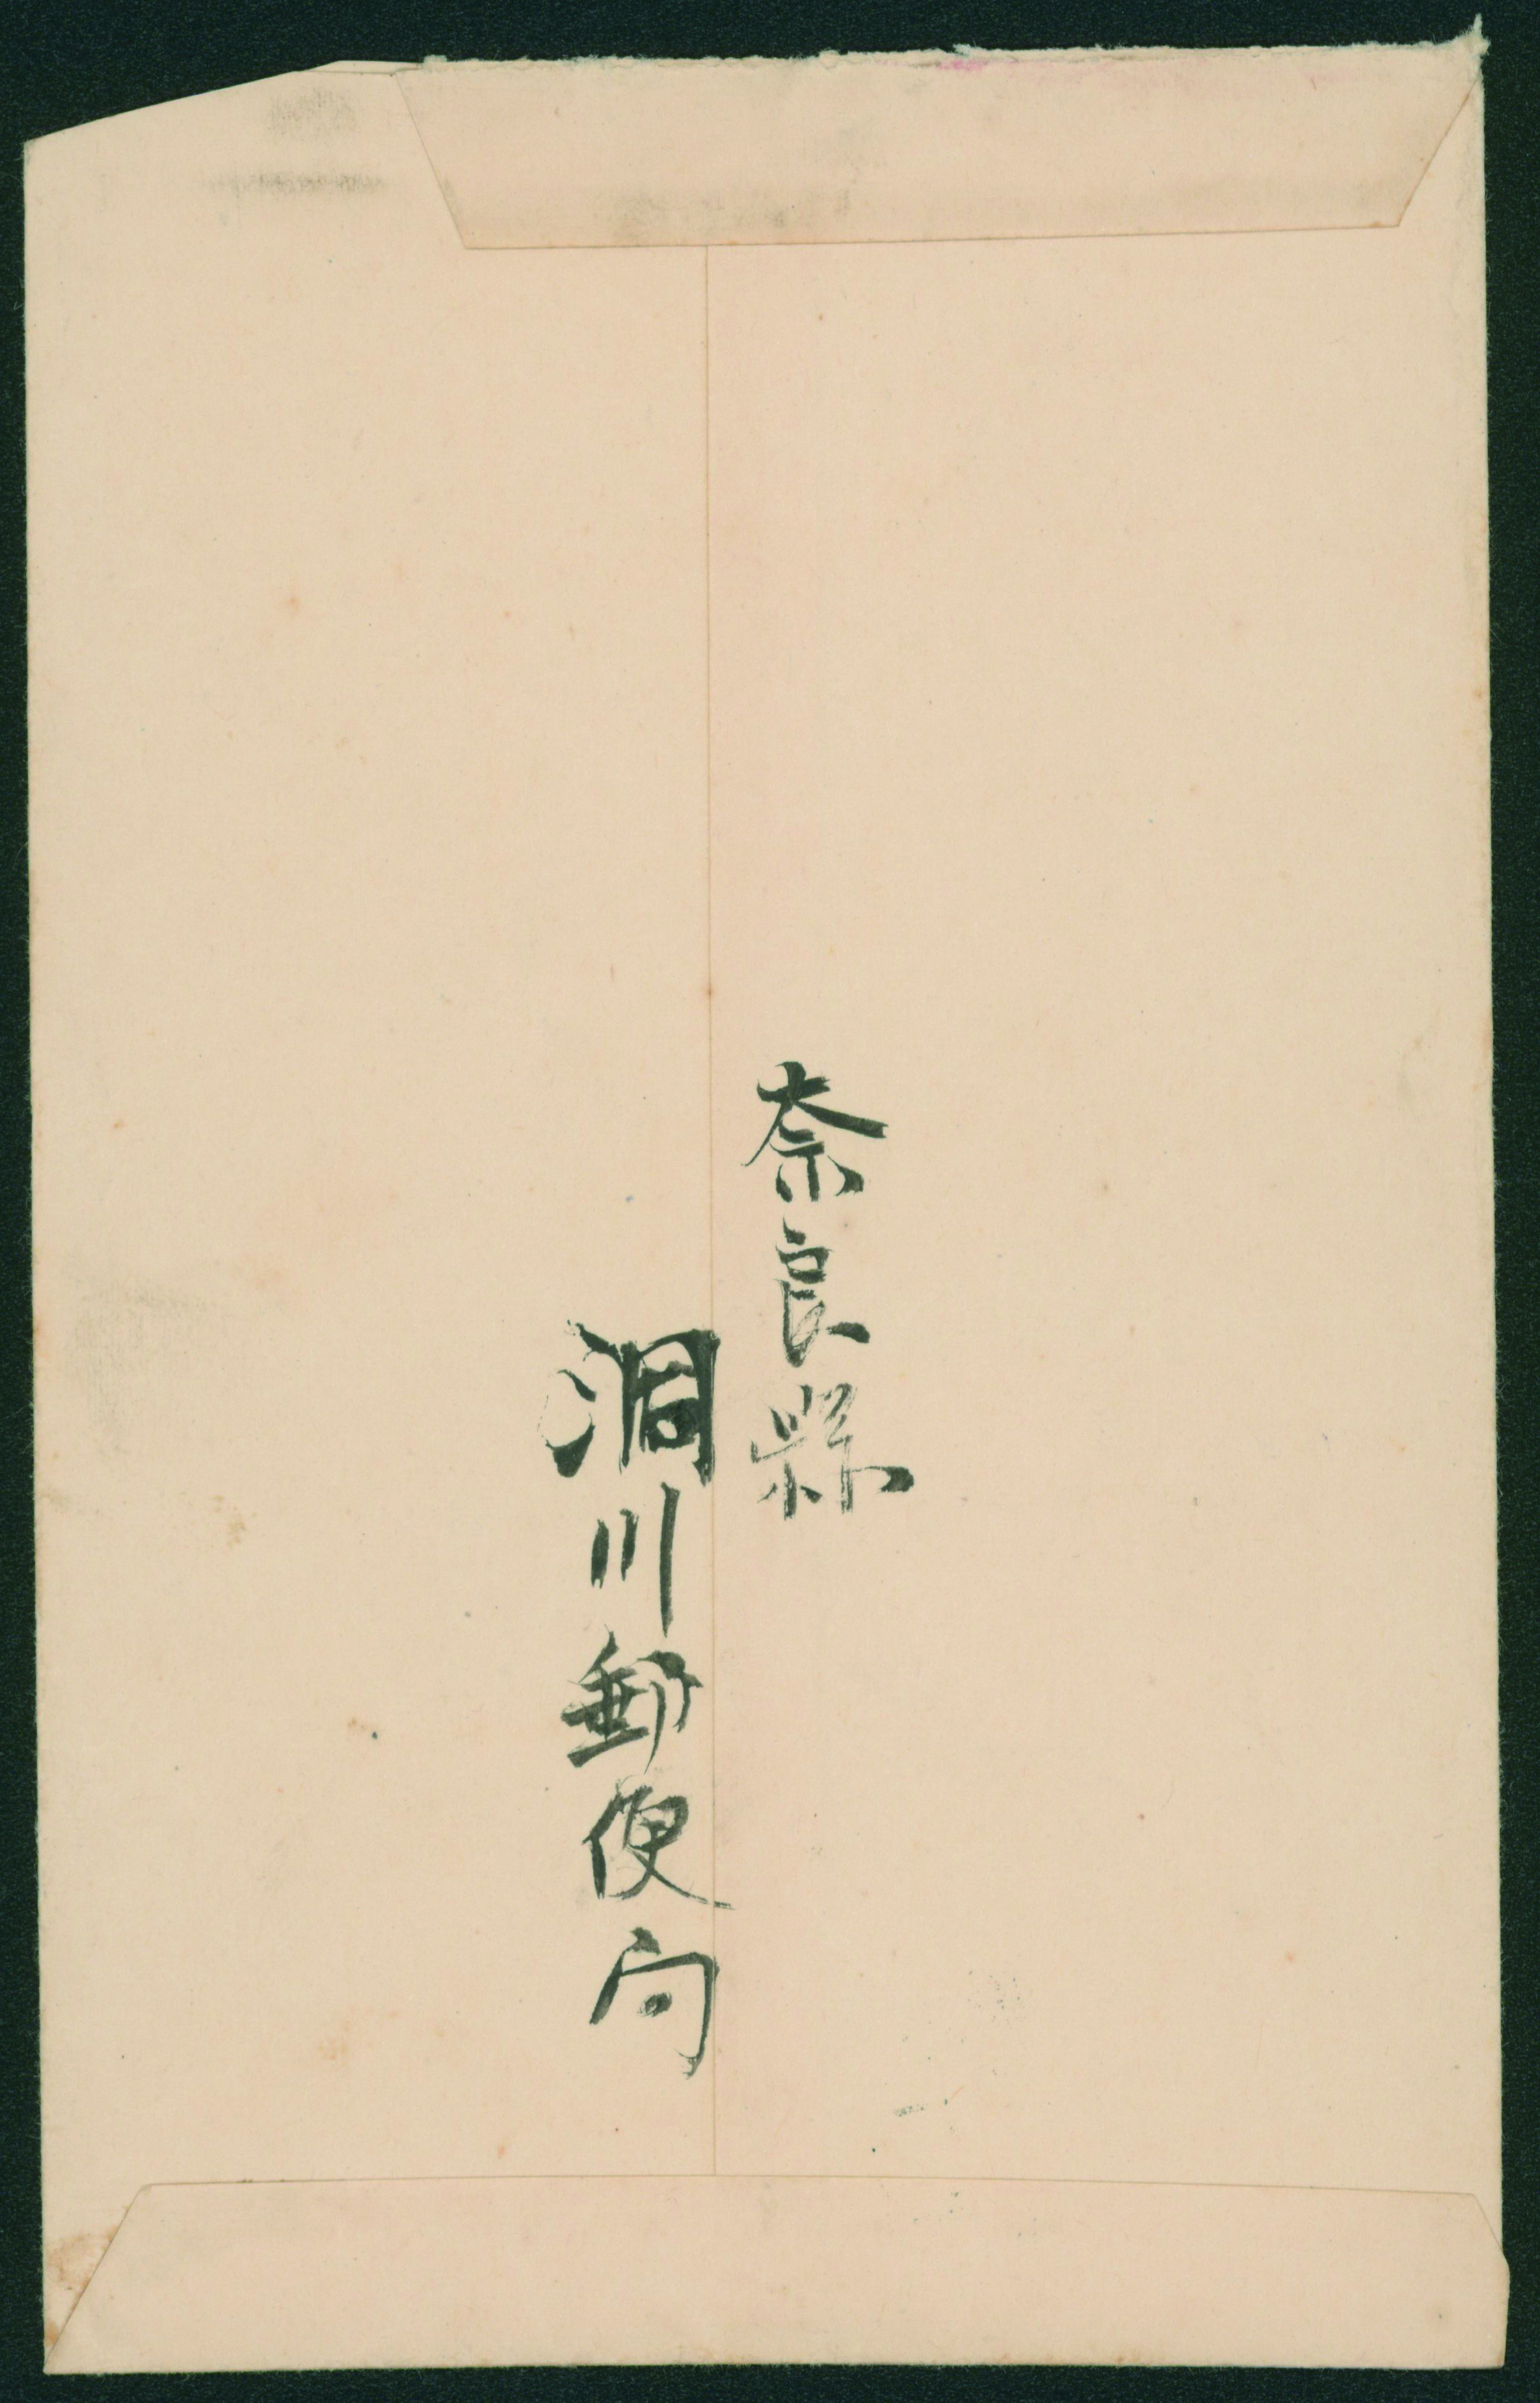 奈良縣
洞川郵便局